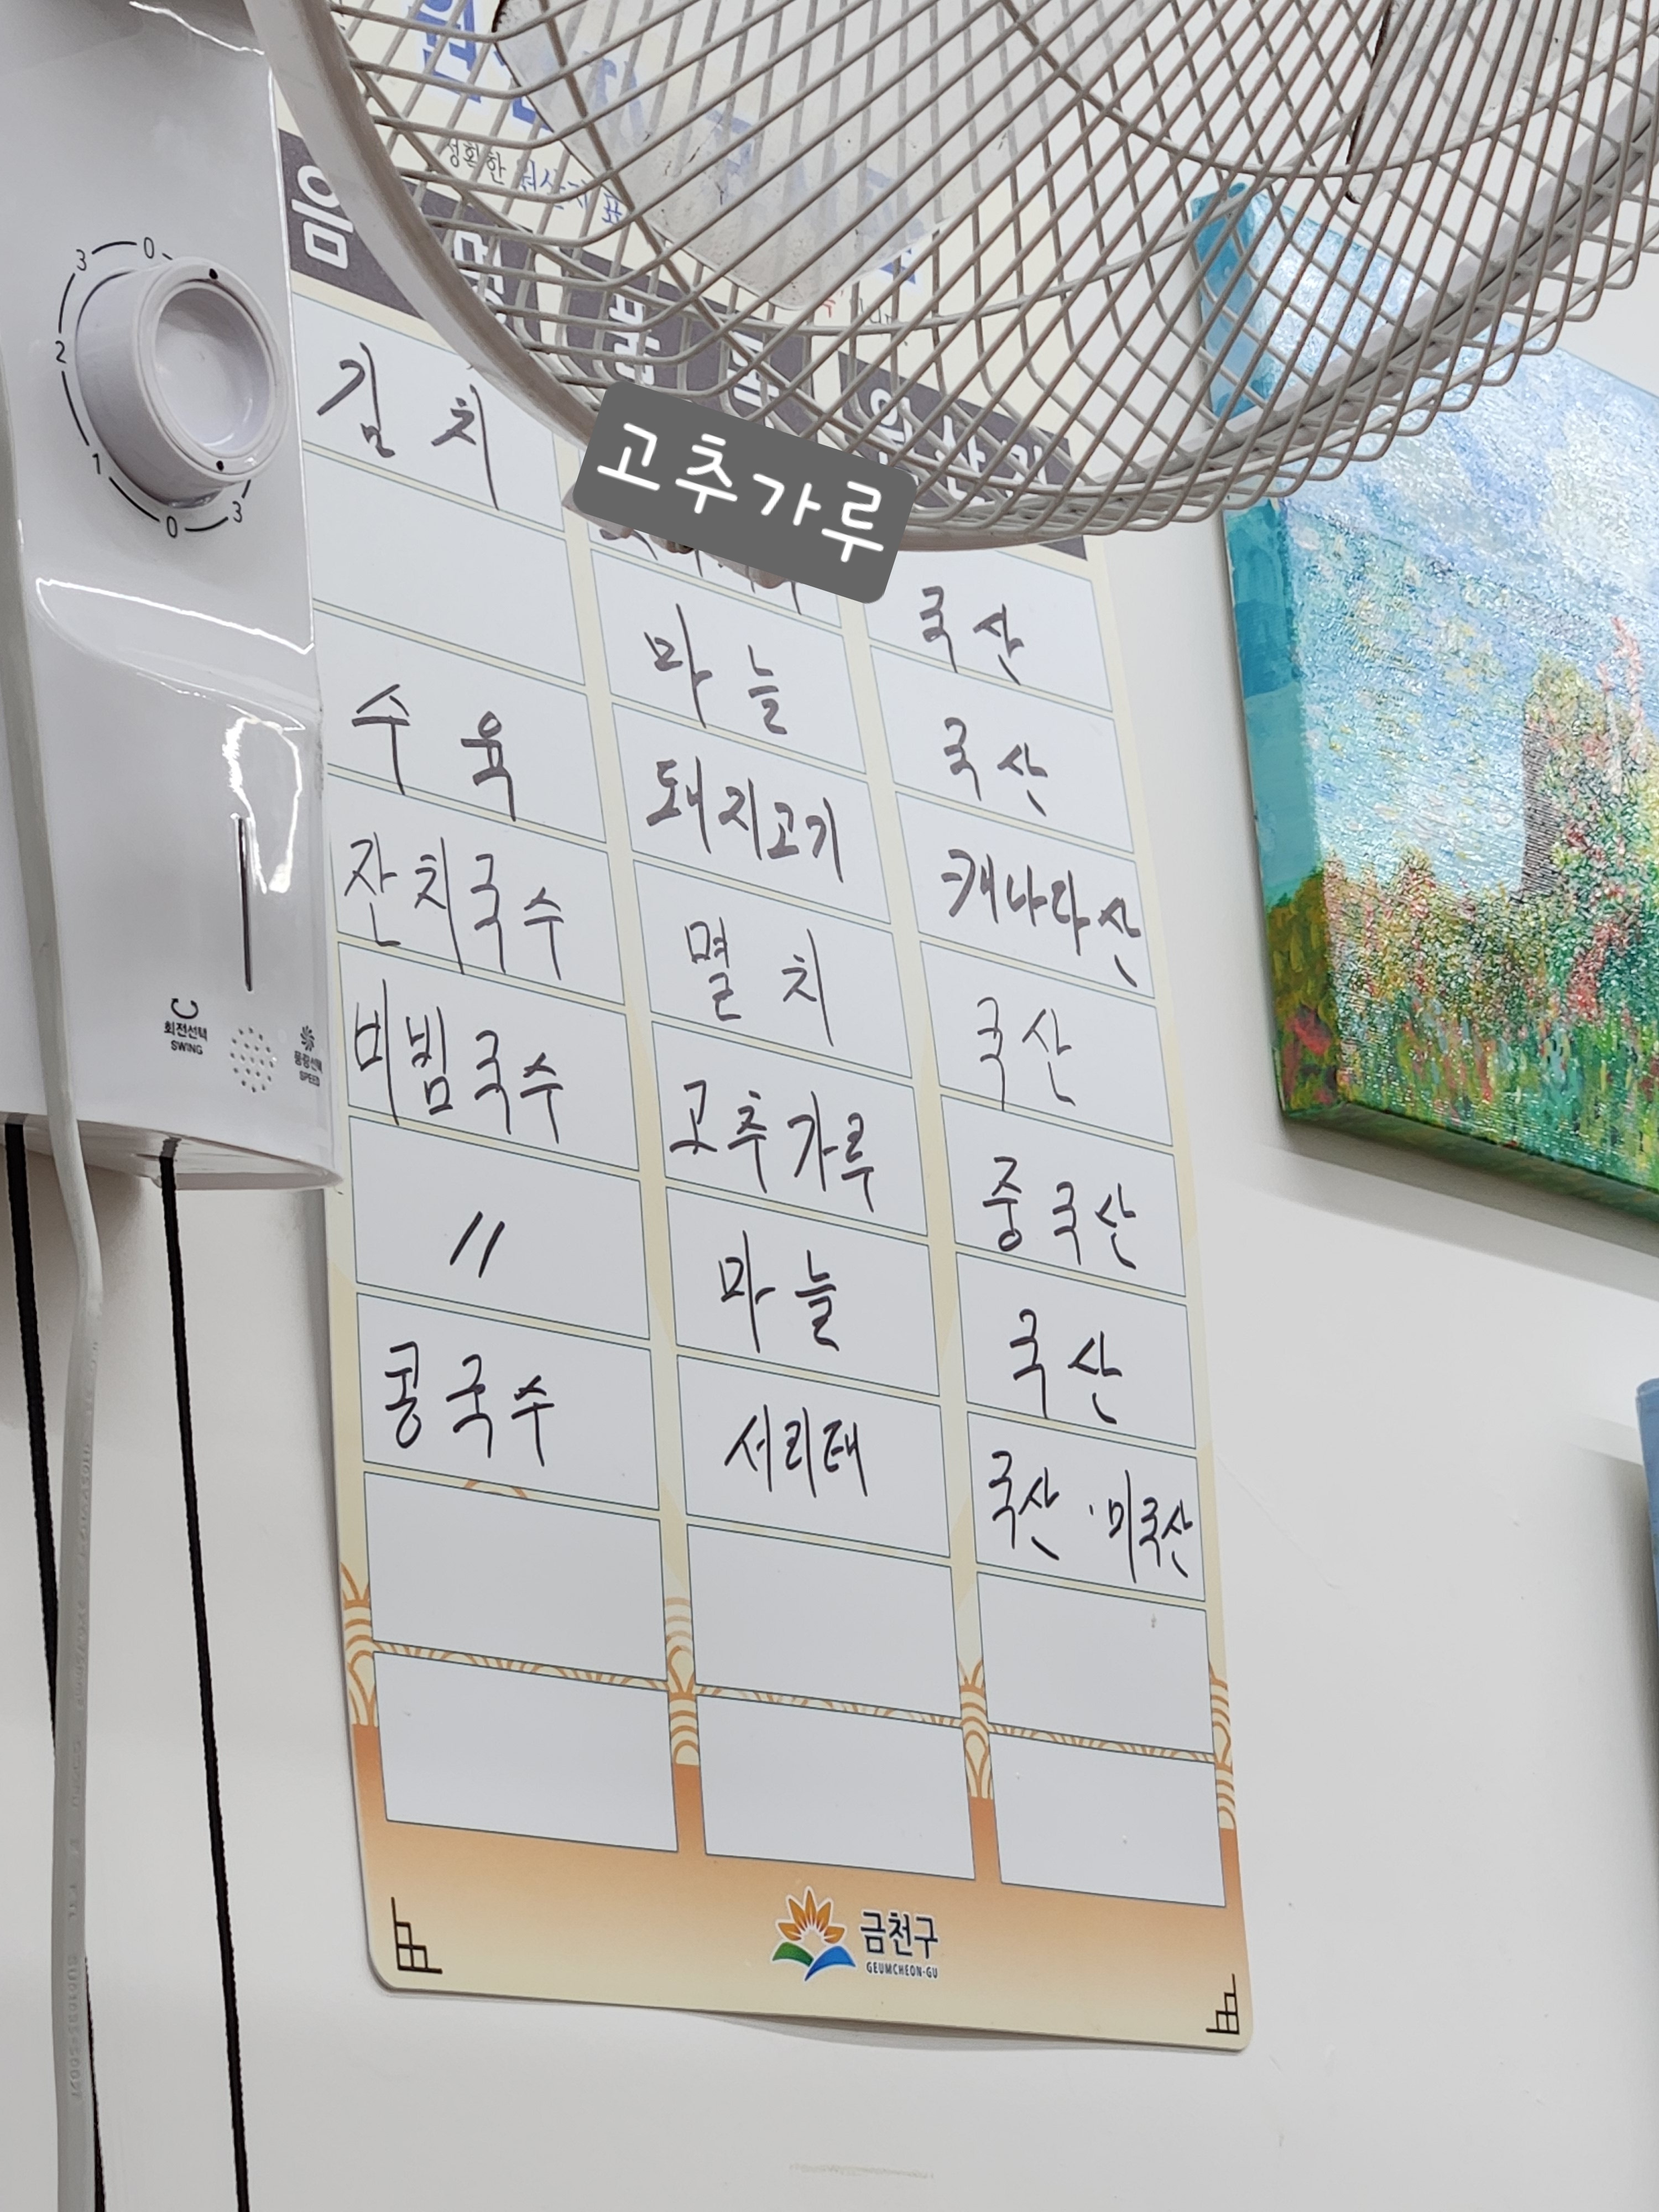 정확한 원산지 표
음 식 명 품 목 원산지
김치 고추가루 국산
마늘 국산
수육 돼지고기 캐나다산
잔치국수 멸치 국산
비빔국수 고추가루 중국산
〃 마늘 국산
콩국수 서리태 국산 · 미국산
금천구
GEUMCHEON-GU
0
3
2
1
0
3
회전선택
SWING
풍량선택
SPEED